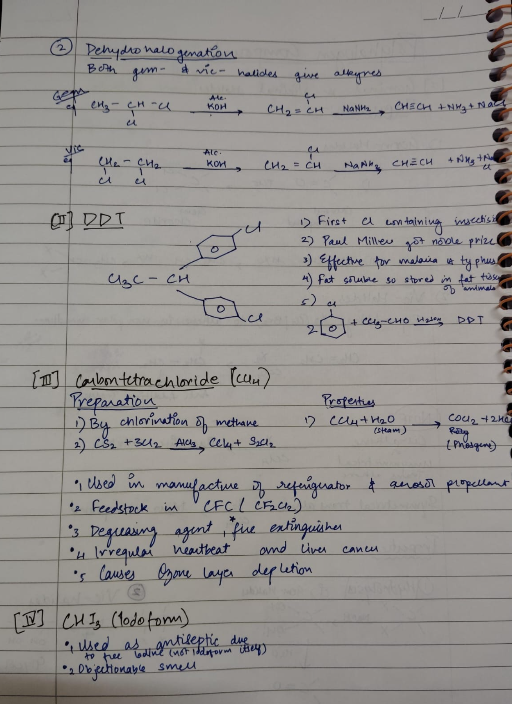 ② Dehydrohalogenation
Both gem- & vic- halides give alkynes
Gem
eg CH3 - CH - Cl Alc. KOH → CH2 = CH NaNH2 → CH≡CH + NH3 + NaCl
Cl Cl
Vic
eg CH2 - CH2 Alc. KOH → CH2 = CH NaNH2 → CH≡CH + NH3 +
Cl Cl Cl
[II] DDT
Cl
Cl3C - CH
Cl
1) First Cl containing insectisi
2) Paul Miller got noble prize
3) Effective for malaria & typhus
4) Fat soluble so stored in fat tissu
of animals
5) Cl
2 + CCl3-CHO H2SO4 → DDT
[III] Carbontetrachloride [CCl4]
Preparation
1) By chlorination of methane
2) CS2 + 3Cl2 AlCl3 → CCl4 + S2Cl2
Properties
1) CCl4 + H2O → COCl2 + 2HCl
(steam)
(Phosgene)
•1 Used in manufacture of refrigirator & aerosol propellant
•2 Feedstock in CFC (CF2Cl2)
•3 Degreasing agent, *fire extinguisher
•4 Irregular heartbeat and liver cancer
•5 Causes Ozone layer depletion
[IV] CHI3 (Iodoform)
•1 Used as antiseptic due
to free iodine (not iodoform itself)
•2 Objectionable smell